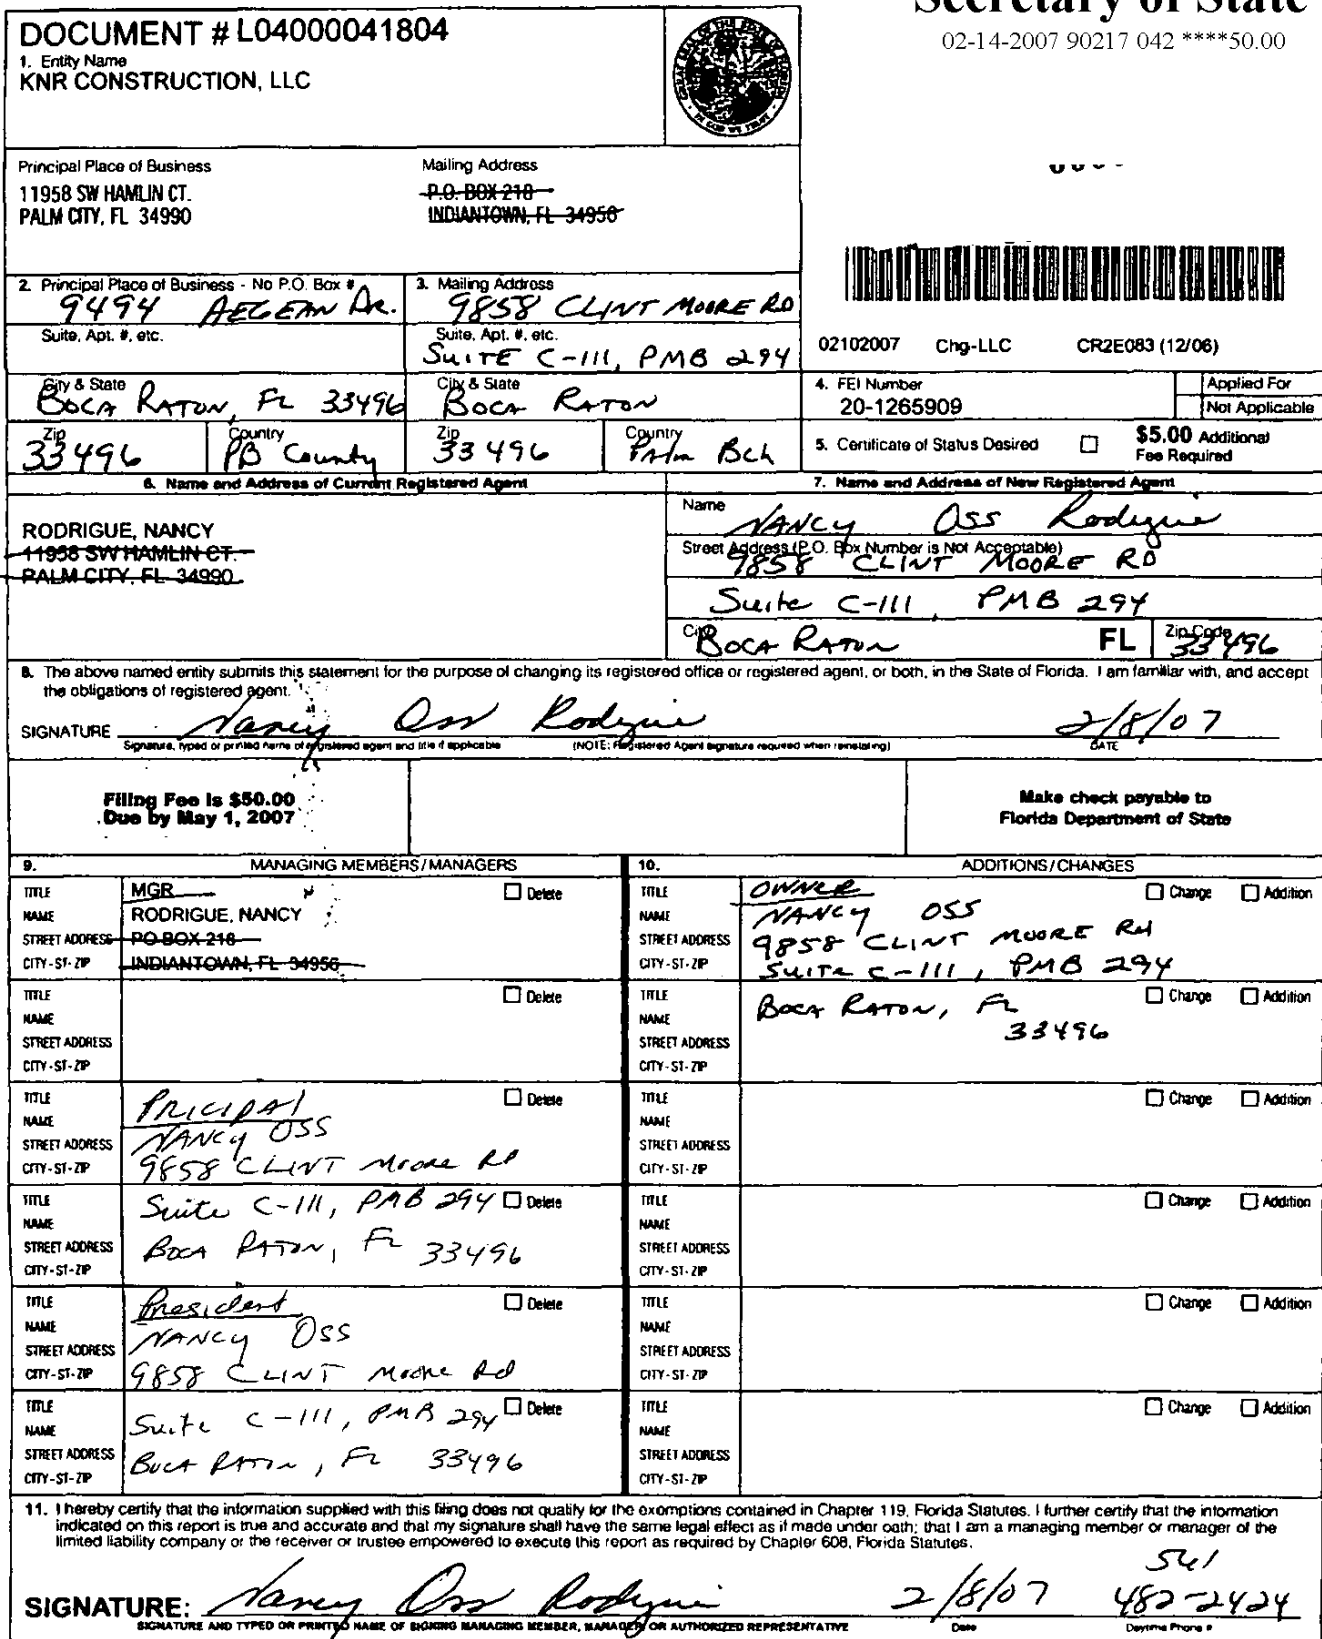 Secretary of State
02-14-2007 90217 042 ****50.00
DOCUMENT # L04000041804
1. Entity Name
KNR CONSTRUCTION, LLC
Principal Place of Business
11958 SW HAMLIN CT.
PALM CITY, FL 34990
Mailing Address
P.O. BOX 218
INDIANTOWN, FL 34956
2. Principal Place of Business - No P.O. Box #
9494 AEGEAN DR.
Suite, Apt. #, etc.
City & State
BOCA RATON, FL 33496
Zip
33496
Country
PB County
3. Mailing Address
9858 CLINT MOORE RD
Suite, Apt. #, etc.
SUITE C-111, PMB 294
City & State
BOCA RATON
Zip
33496
Country
PAlm Bch
02102007 Chg-LLC CR2E083 (12/06)
4. FEI Number
20-1265909
Applied For
Not Applicable
5. Certificate of Status Desired
$5.00 Additional
Fee Required
6. Name and Address of Current Registered Agent
RODRIGUE, NANCY
11958 SW HAMLIN CT.
PALM CITY, FL 34990
7. Name and Address of New Registered Agent
Name
NANCY Oss Rodrigue
Street Address (P.O. Box Number is Not Acceptable)
9858 CLINT MOORE RD
Suite C-111, PMB 294
City
BOCA RATON
FL
Zip Code
33496
8. The above named entity submits this statement for the purpose of changing its registered office or registered agent, or both, in the State of Florida. I am familiar with, and accept
the obligations of registered agent.
SIGNATURE Nancy Oss Rodrigue 2/8/07
Signature, typed or printed name of registered agent and title if applicable
(NOTE: Registered Agent signature required when reinstating)
DATE
Filing Fee is $50.00
Due by May 1, 2007
Make check payable to
Florida Department of State
9. MANAGING MEMBERS/MANAGERS
TITLE MGR Delete
NAME RODRIGUE, NANCY
STREET ADDRESS PO BOX 218
CITY-ST-ZIP INDIANTOWN, FL 34956
TITLE Delete
NAME
STREET ADDRESS
CITY-ST-ZIP
TITLE PRICIPAl Delete
NAME NANCY OSS
STREET ADDRESS 9858 CLINT Moore RD
CITY-ST-ZIP
TITLE Suite C-111, PMB 294 Delete
NAME
STREET ADDRESS BOCA RATON, FL 33496
CITY-ST-ZIP
TITLE President Delete
NAME NANCY OSS
STREET ADDRESS
CITY-ST-ZIP 9858 CLINT Moore Rd
TITLE Suite C-111, PMB 294 Delete
NAME
STREET ADDRESS BOCA RATON, FL 33496
CITY-ST-ZIP
10. ADDITIONS/CHANGES
TITLE OWNER Change Addition
NAME NANCY OSS
STREET ADDRESS 9858 CLINT MOORE Rd
CITY-ST-ZIP SUITE C-111, PMB 294
TITLE BOCA RATON, FL Change Addition
NAME 33496
STREET ADDRESS
CITY-ST-ZIP
TITLE Change Addition
NAME
STREET ADDRESS
CITY-ST-ZIP
TITLE Change Addition
NAME
STREET ADDRESS
CITY-ST-ZIP
TITLE Change Addition
NAME
STREET ADDRESS
CITY-ST-ZIP
TITLE Change Addition
NAME
STREET ADDRESS
CITY-ST-ZIP
11. I hereby certify that the information supplied with this filing does not qualify for the exemptions contained in Chapter 119, Florida Statutes. I further certify that the information
indicated on this report is true and accurate and that my signature shall have the same legal effect as if made under oath; that I am a managing member or manager of the
limited liability company or the receiver or trustee empowered to execute this report as required by Chapter 608, Florida Statutes.
561
SIGNATURE: Nancy Oss Rodrigue 2/8/07 482-2424
SIGNATURE AND TYPED OR PRINTED NAME OF SIGNING MANAGING MEMBER, MANAGER, OR AUTHORIZED REPRESENTATIVE Date Daytime Phone #